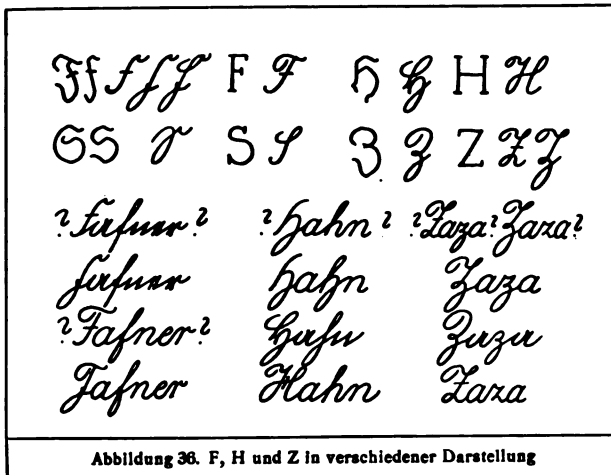 F f f f F F F H H H H
S S S S S Z Z Z Z Z
?Fafner? ?Hahn? ?Zaza?Zaza?
Fafner Hahn Zaza
?Fafner? Hahn Zaza
Fafner Hahn Zaza
Abbildung 36. F, H und Z in verschiedener Darstellung